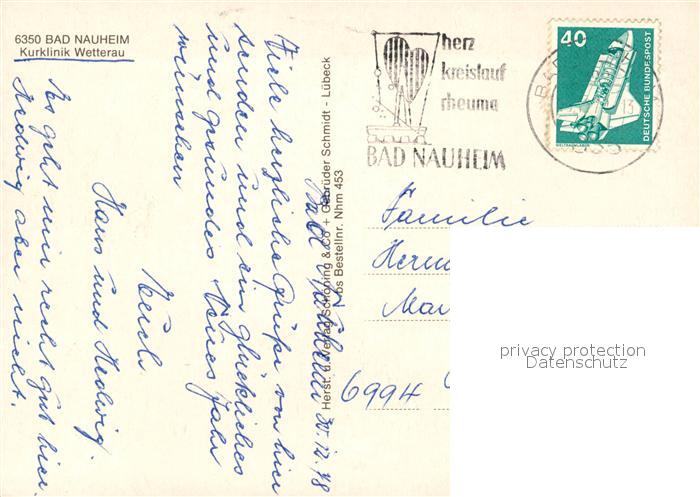 6350 BAD NAUHEIM
Kurklinik Wetterau
Bad Nauheim 30.12.78
Viele herzliche Grüße von hier
senden und ein glückliches
und gesundes Neues Jahr
wünschen
Euch
Hans und Hedwig.
Es geht mir recht gut hier.
Hedwig aber nicht.
Herst. u. Verlag Schöning & Co + Gebrüder Schmidt - Lübeck
Bestellnr. Nhm 453
herz
kreislauf
rheuma
BAD NAUHEIM
40
DEUTSCHE BUNDESPOST
WELTRAUMLABOR
Familie
6994
privacy protection
Datenschutz